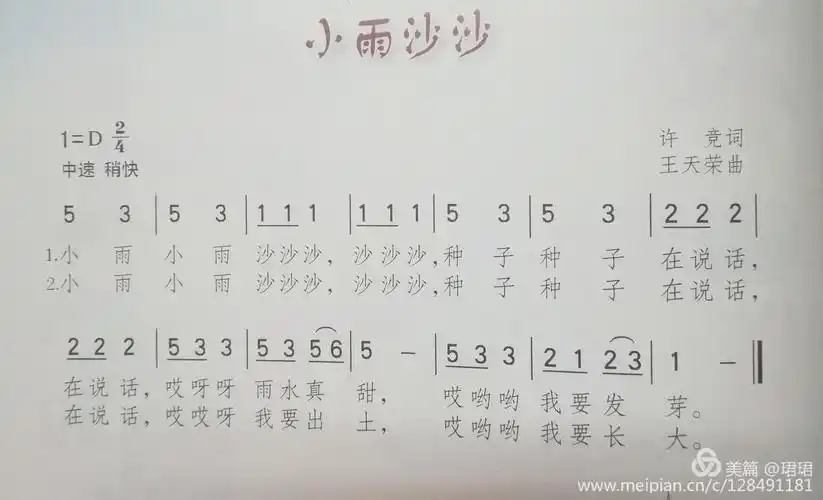 小雨沙沙
1=D 2/4
许 竞词
中速 稍快
王天荣曲
5 3 | 5 3 | 1 1 1 | 1 1 1 | 5 3 | 5 3 | 2 2 2 |
1.小 雨 小 雨 沙沙沙, 沙沙沙, 种 子 种 子 在说话,
2.小 雨 小 雨 沙沙沙, 沙沙沙, 种 子 种 子 在说话,
2 2 2 | 5 3 3 | 5 3 5 6 | 5 – | 5 3 3 | 2 1 2 3 | 1 – ‖
在说话, 哎呀呀 雨水真 甜, 哎哟哟 我要发 芽。
在说话, 哎哎呀 我要出 土, 哎哟哟 我要长 大。
美篇 @珺珺
www.meipian.cn/c/128491181